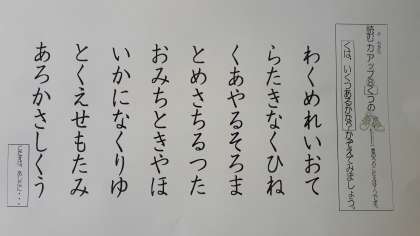 読む力アップ
「く」は、いくつあるかな?かぞえてみましょう。
わくめれいおて
らたきなくひね
くあやるそろま
とめさちるつた
おみちときやほ
いかになくりゆ
とくえせもたみ
あろかさしくう